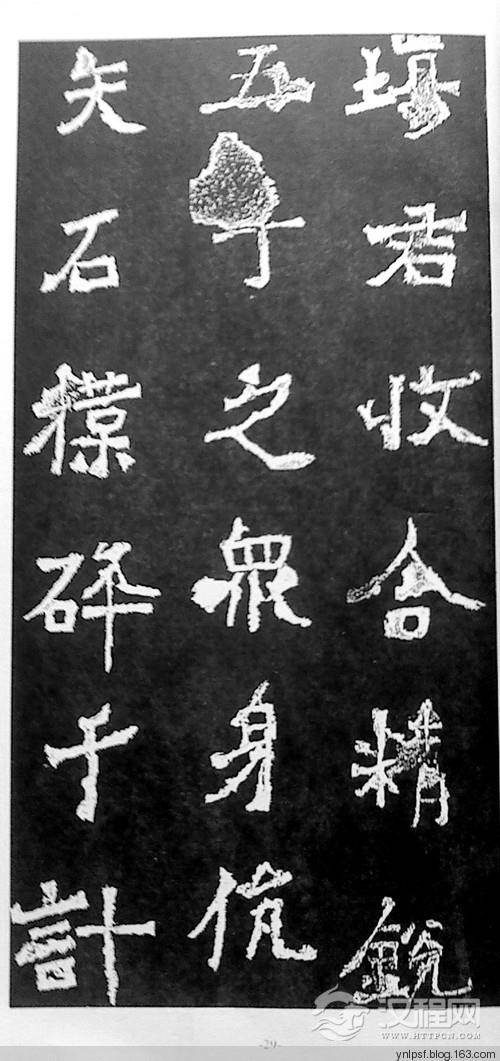 場君收合精銳
五千之衆身伉
矢石撲碎千計
汉程网
WWW.HTTPCN.COM
-29-
ynlpsf.blog.163.com